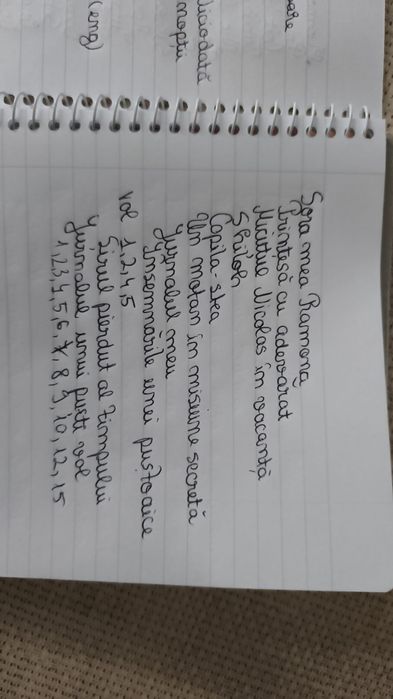 oare
niciodată
nopții
(eng)
Sora mea Ramona
Prințesă cu adevărat
Micuțul Nicolas în vacanță
Shiloh
Copila-stea
Un motan în misiune secretă
Jurnalul meu
Însemnările unei puștoaice
vol 1,2,4,5
Șirul pierdut al timpului
Jurnalul unui puști vol
1,2,3,4,5,6,7,8,9,10,12,15